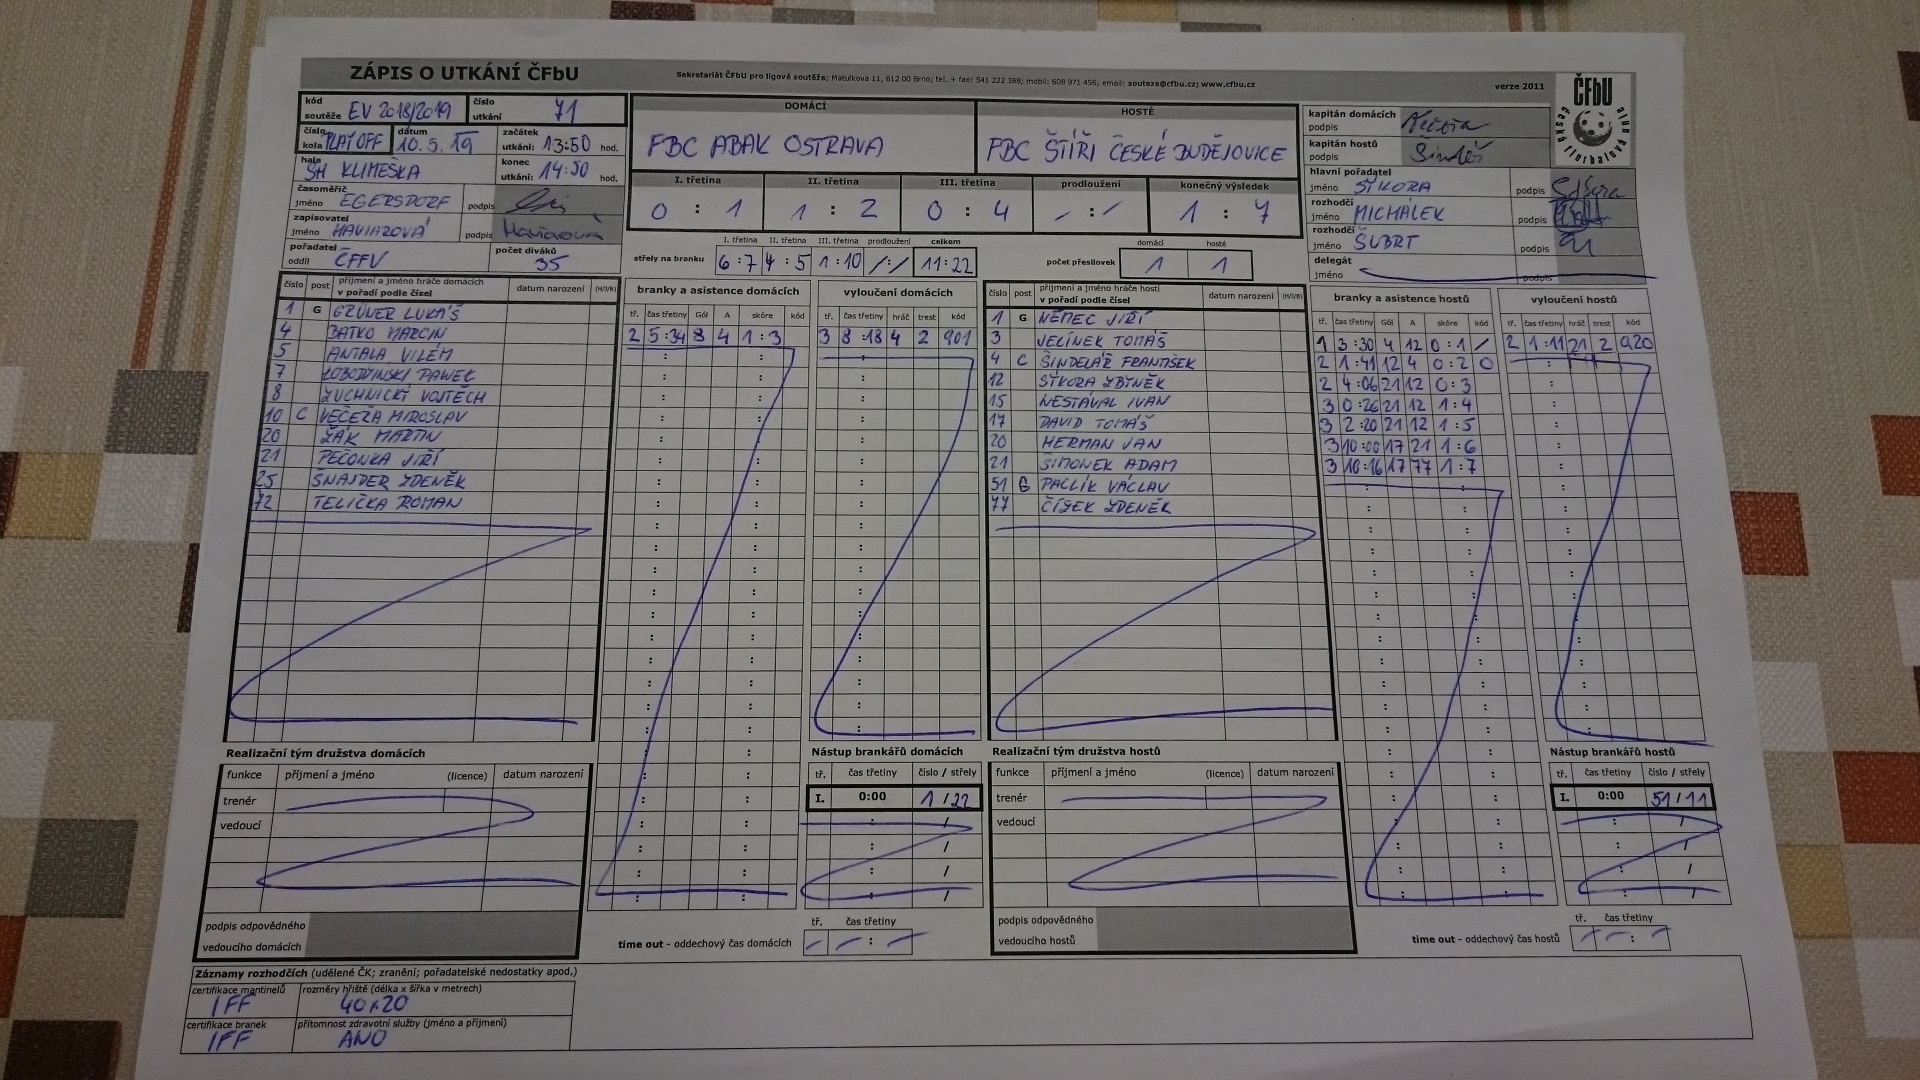 ZÁPIS O UTKÁNÍ ČFbU
Sekretariát ČFbU pro ligové soutěže; Matulkova 11, 612 00 Brno; tel. + fax: 541 222 388; mobil: 608 971 455; email: souteze@cfbu.cz; www.cfbu.cz
verze 2011
ČFbU
česká florbalová unie
kód soutěže EV 2018/2019
číslo utkání 71
číslo kola PLAY OFF
datum 10.5.19
začátek utkání: 13:50 hod.
hala SH KLIMEŠKA
konec utkání: 14:50 hod.
časoměřič jméno EGERSDORF podpis
zapisovatel jméno HAVIAROVÁ podpis
pořadatel oddíl ČFFV
počet diváků 35
DOMÁCÍ
FBC ABAK OSTRAVA
HOSTÉ
FBC ŠTÍŘI ČESKÉ BUDĚJOVICE
I. třetina II. třetina III. třetina prodloužení konečný výsledek
0 : 1 1 : 2 0 : 4 - : - 1 : 7
I. třetina II. třetina III. třetina prodloužení celkem
střely na branku 6 : 7 4 : 5 1 : 10 / : / 11 : 22
domácí hosté
počet přesilovek 1 1
kapitán domácích podpis
kapitán hostů podpis
hlavní pořadatel
jméno SÝKORA podpis
rozhodčí
jméno MICHÁLEK podpis
rozhodčí
jméno ŠUBRT podpis
delegát
jméno podpis
číslo post příjmení a jméno hráče domácích v pořadí podle čísel datum narození (H/J/B)
1 G GRÜNER LUKÁŠ
4 BATKO MARCIN
5 ANTALA VILÉM
7 LOBODZINSKI PAWEL
8 ZUCHNICKÝ VOJTĚCH
10 C VEČEŘA MIROSLAV
20 ŽÁK MARTIN
21 PEČONKA JIŘÍ
25 ŠNAJDER ZDENĚK
72 TELIČKA ROMAN
branky a asistence domácích
tř. čas třetiny Gól A skóre kód
2 5:34 8 4 1:3
vyloučení domácích
tř. čas třetiny hráč trest kód
3 8:18 4 2 901
číslo post příjmení a jméno hráče hostí v pořadí podle čísel datum narození (H/J/B)
1 G NĚMEC JIŘÍ
3 JELÍNEK TOMÁŠ
4 C ŠINDELÁŘ FRANTIŠEK
12 SÝKORA ZBYNĚK
15 NESTÁVAL IVAN
17 DAVID TOMÁŠ
20 HERMAN JAN
21 ŠIMONEK ADAM
51 G PALLÍK VÁCLAV
77 ČÍŽEK ZDENĚK
branky a asistence hostů
tř. čas třetiny Gól A skóre kód
1 3:30 4 12 0:1 /
2 1:41 12 4 0:2 0
2 4:06 21 12 0:3
3 0:26 21 12 1:4
3 2:20 21 12 1:5
3 10:00 17 21 1:6
3 10:16 17 77 1:7
vyloučení hostů
tř. čas třetiny hráč trest kód
2 1:11 21 2 920
Realizační tým družstva domácích
funkce příjmení a jméno (licence) datum narození
trenér
vedoucí
podpis odpovědného
vedoucího domácích
Nástup brankářů domácích
tř. čas třetiny číslo / střely
I. 0:00 1 / 22
tř. čas třetiny
time out - oddechový čas domácích - - : -
Realizační tým družstva hostů
funkce příjmení a jméno (licence) datum narození
trenér
vedoucí
podpis odpovědného
vedoucího hostů
Nástup brankářů hostů
tř. čas třetiny číslo / střely
I. 0:00 51 / 11
tř. čas třetiny
time out - oddechový čas hostů - - : -
Záznamy rozhodčích (udělené ČK; zranění; pořadatelské nedostatky apod.)
certifikace mantinelů IFF
rozměry hřiště (délka x šířka v metrech) 40x20
certifikace branek IFF
přítomnost zdravotní služby (jméno a příjmení) ANO